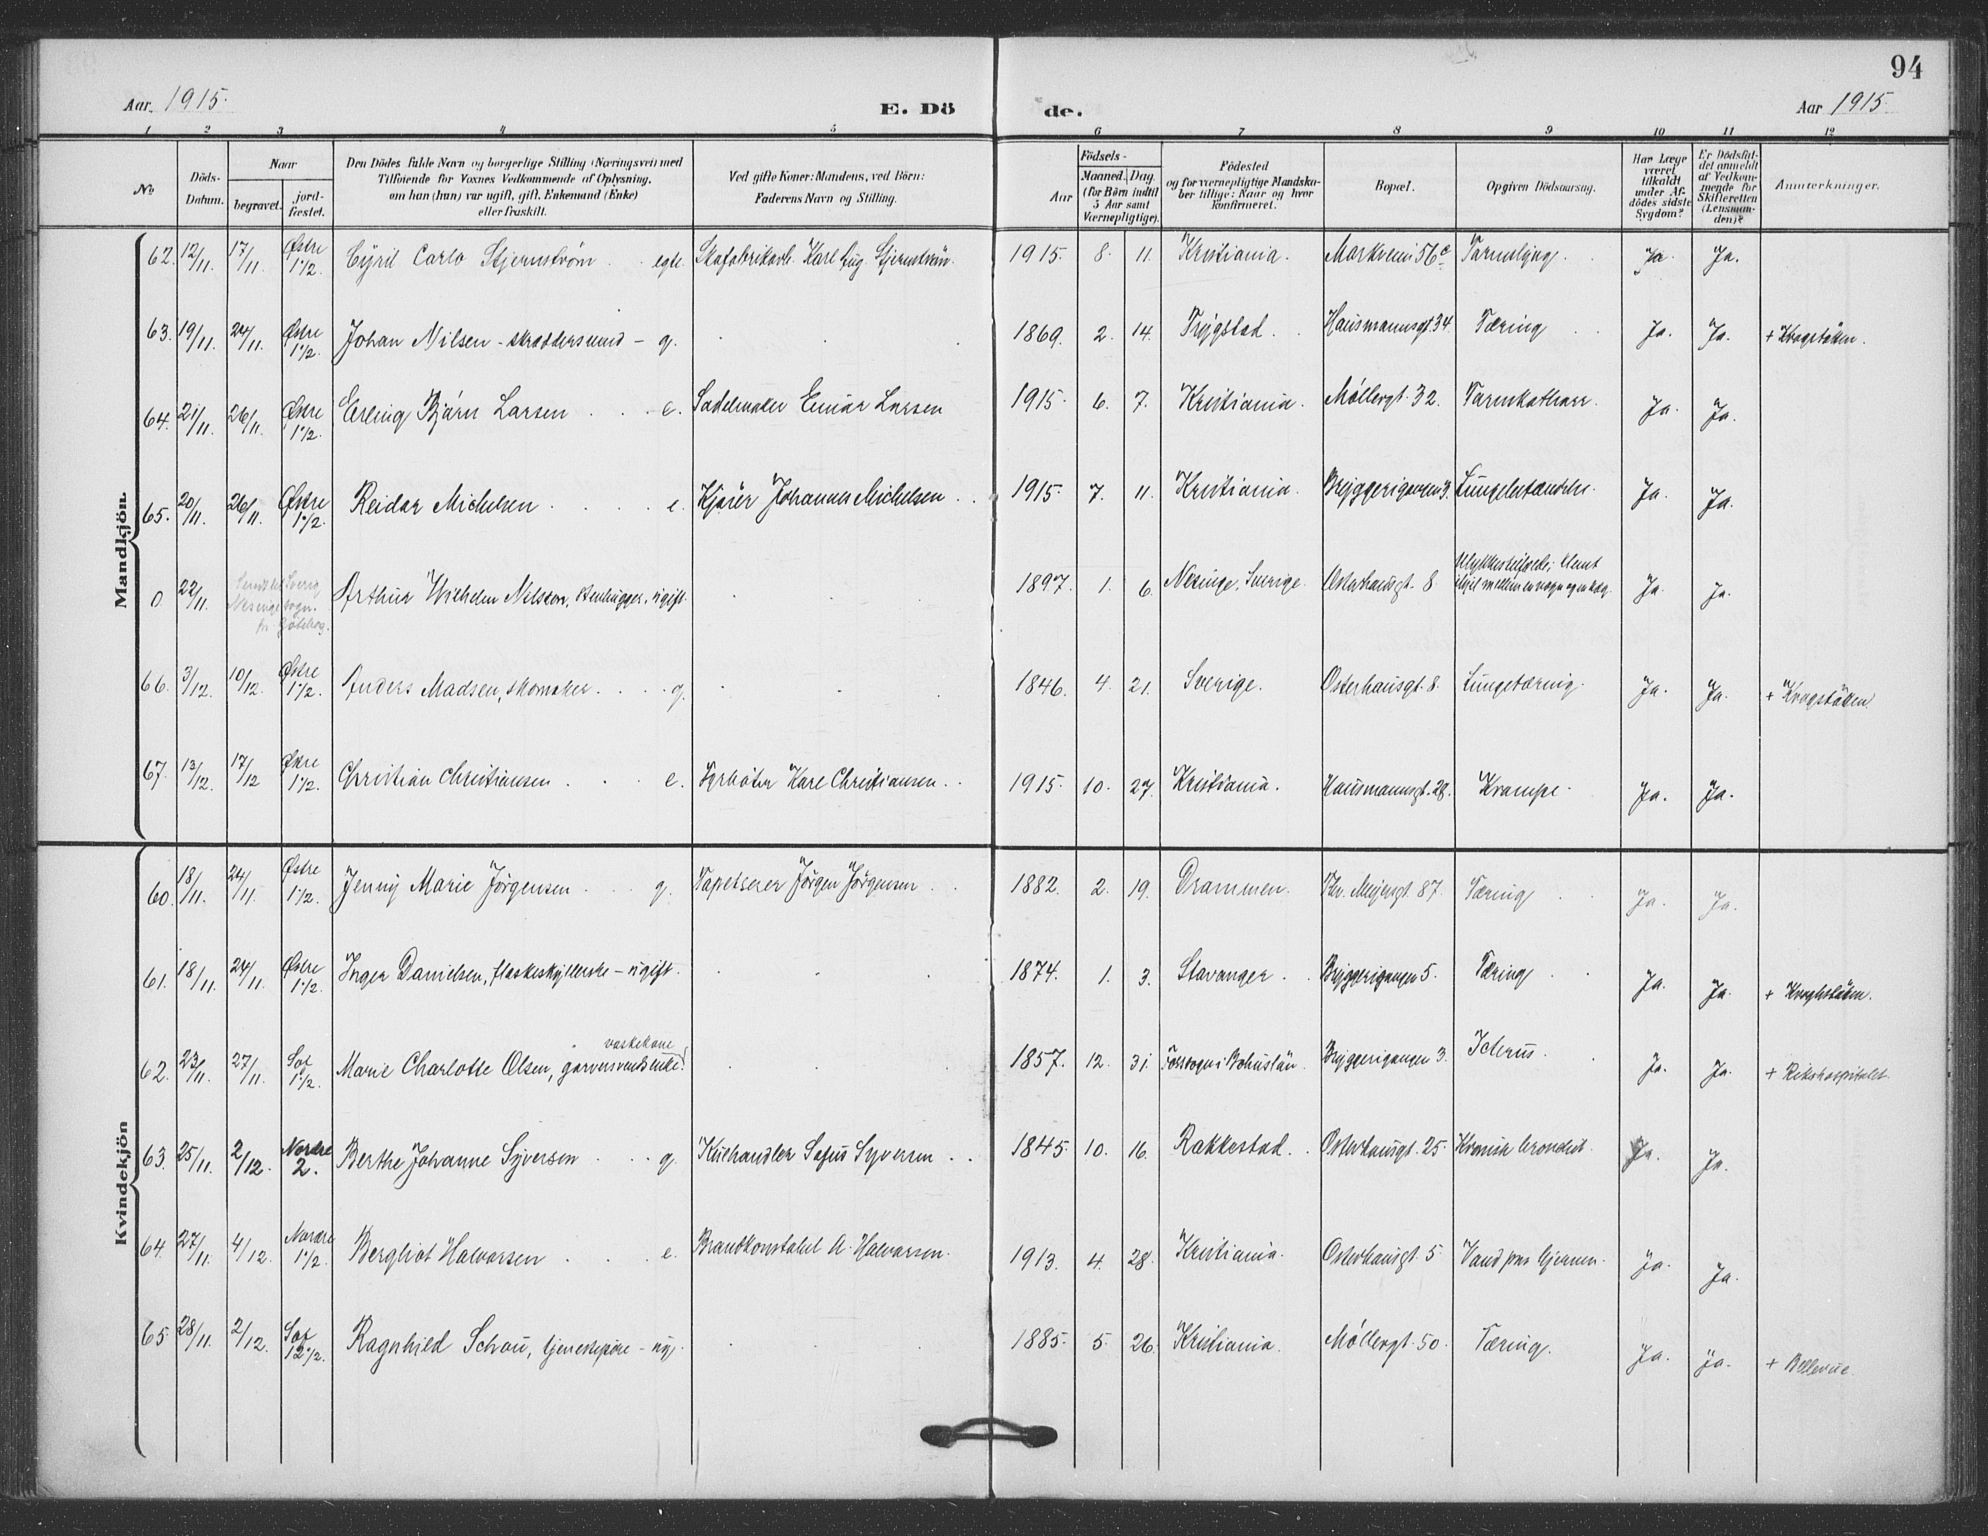 94
Aar. 1915.
E. Dö
de.
Aar 1915
1 2 3 4 5 6 7 8 9 10 11 12
No
Döds-
Datum.
Naar
begravet.
jord-
fæstet.
Den Dödes fulde Navn og borgerlige Stilling (Næringsvei) med
Tilföiende för Voxnes Vedkommende af Oplysning,
om han (hun) var ugift, gift, Enkemand (Enke)
eller fraskilt.
Ved gifte Koner: Mandens, ved Börn:
Faderens Navn og Stilling.
Födsels-
Aar
Maaned. Dag
(for Börn indtil
5 Aar samt
Værnepligtige).
Födested
og for værnepligtige Mandska-
ber tillige: Naar og hvor
konfirmeret.
Bopæl.
Opgiven Dödsaarsag.
Har Læge
været
tilkaldt
under Af-
dödes sidste
Sygdom?
Er Dödsfal-
det anmeldt
af Vedkom-
mende for
Skifteretten
(Lensman-
den)?
Anmærkninger.
Mandkjön.
62. 12/11. 17/11. Østre 1 1/2. Cyril Carlo Stjernström . . egte. Karl Eug. Stjernström. 1915. 8. 11. Kristiania. Markveien 56 c Tarmslyng . . Ja. Ja.
63. 19/11. 24/11. Østre 1 1/2. Johan Nilsen - skræddersvend - g. 1869. 2. 14. Trøgstad. Hausmannsgt 34. Tæring . . Ja. Ja. + Krogstötten.
64. 21/11. 26/11. Østre 1 1/2. Erling Bjørn Larsen . . . e. Sadelmaker Einar Larsen 1915. 6. 7. Kristiania. Møllergt. 32. Tarmkatharr. Ja. Ja.
65. 20/11. 26/11. Østre 1 1/2. Reidar Michelsen . . . e. Kjører Johannes Michelsen . . 1915. 7. 11. Kristiania. Bryggerigangen 3. Lungebetændelse. Ja. Ja.
0 22/11. Sendt til Sverig
Nesinge sogn.
fri Göteborg.
Arthur Wilhelm Nilsson, stenhugger, ugift 1897. 1. 6. Nesinge, Sverige. Osterhausgt. 8 Ulykkestilfælde; klemt
ihjel mellem en vogn og en Ja. Ja.
66. 3/12. 10/12. Østre 1 1/2. Anders Madsen, skomaker . . . g. 1846. 4. 21. Sverige. Osterhausgt. 8. Lungetæring. Ja. Ja. + Krogstötten
67. 13/12. 17/12 Østre 1 1/2. Christian Christiansen . . e. Fyrbøter Kare Christiansen . . 1915. 10. 27. Kristiania. Hausmannsgt. 28. Krampe. Ja. Ja.
Kvindekjön
60. 18/11. 24/11. Østre 1 1/2. Jenny Marie Jørgensen . . g. Tapetserer Jörgen Jörgensen . . 1882. 2. 19. Drammen. Thv. Meijersgt. 87. Tæring . . Ja. Ja.
61. 18/11. 24/11. Østre 1 1/2. Inger Danielsen, flaskeskyllerske - ugift. 1874. 1. 3. Stavanger . . Bryggerigangen 5. Tæring . . Ja. Ja. + Kroghstötten.
vaskekone
62. 23/11. 27/11. Sof 1 1/2. Marie Charlotte Olsen, garversvendsenke. 1857. 12. 31. Bohuslän. Bryggerigangen 3. Icterus. Ja. Ja. + Rikshospitalet.
63. 25/11. 2/12. Nordre 2. Berthe Johanne Syversen . . g. Sofus Syversen . . 1845. 10. 16. Rakkestad. Osterhausgt. 25. Kronisk bronchit. Ja. Ja.
64. 27/11. 4/12. Nordre 1 1/2. Bergliot Halvorsen . . e. Brandkonstabel A. Halvorsen. 1913. 4. 28. Kristiania. Osterhausgt. 5 Vand paa hjernen. Ja. Ja.
65. 28/11. 2/12. Sof 12 1/2. Ragnhild Schou, tjenestepike - ug. 1885. 5. 26. Kristiania. Møllergt. 50. Tæring. Ja. Ja. + Bellevue.